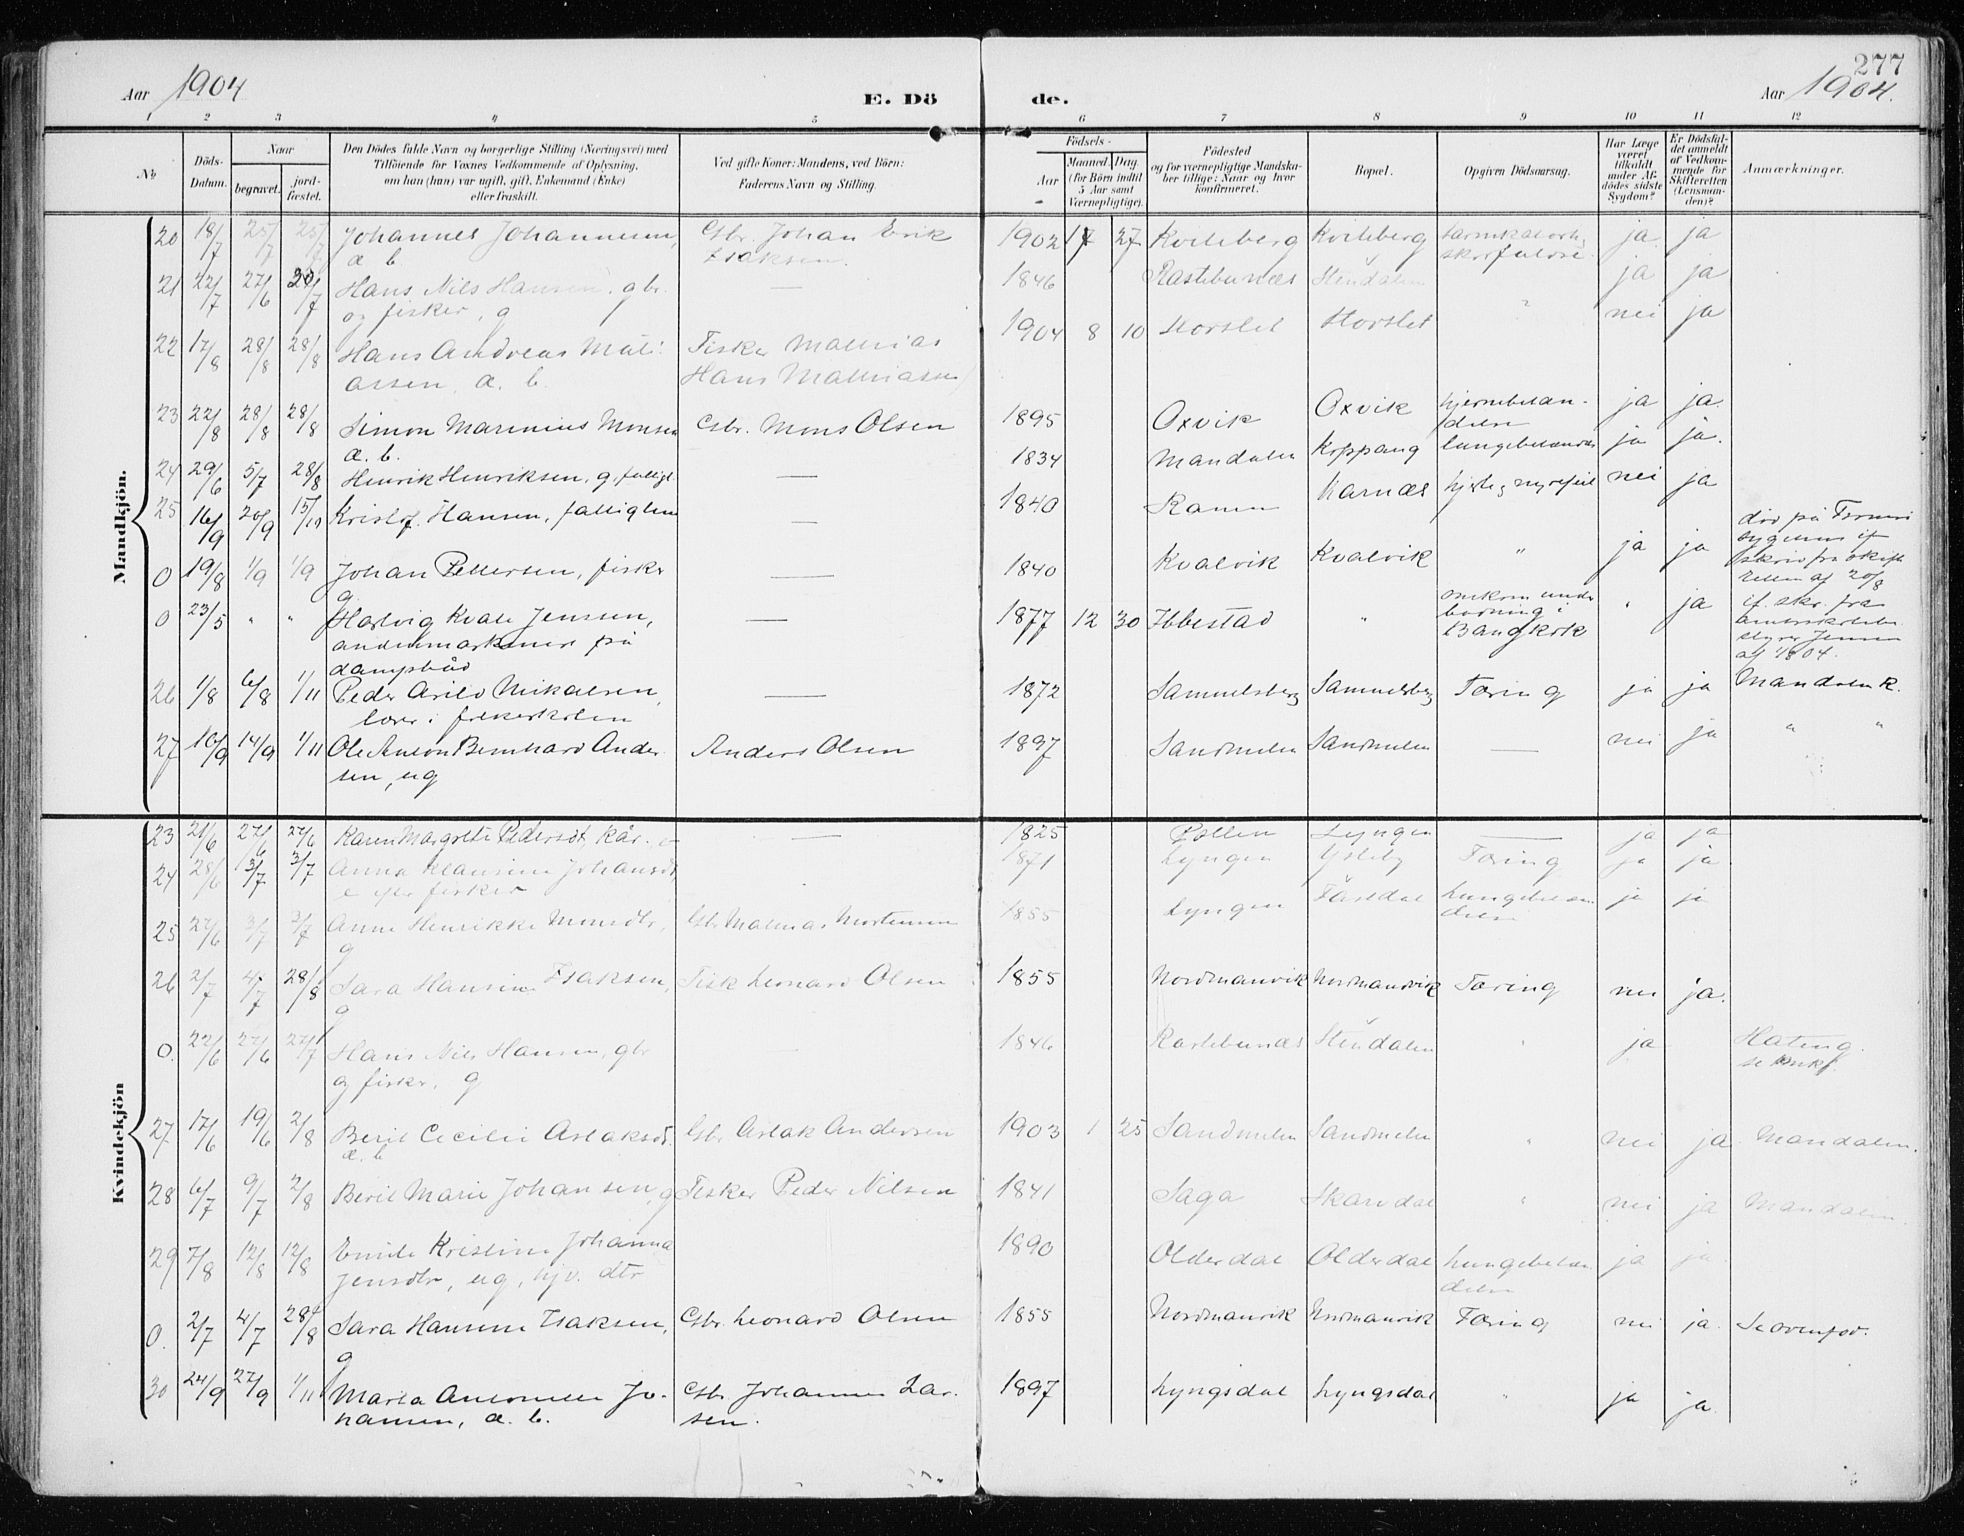 277
Aar 1904
E. Döde.
Aar 1904.
1 2 3 4 5 6 7 8 9 10 11 12
No
Döds-Datum.
Naar
begravet.
jordfæstet.
Den Dödes fulde Navn og borgerlige Stilling (Næringsvei) med
Tilföiende for Voxnes Vedkommende af Oplysning,
om han (hun) var ugift, gift, Enkemand (Enke)
eller fraskilt.
Ved gifte Koner: Mandens, ved Börn:
Faderens Navn og Stilling.
Födsels-
Aar
Maaned. Dag.
(for Börn indtil
5 Aar samt
Værnepligtige).
Födested
og for værnepligtige Mandskaber tillige: Naar og hvor
konfirmeret.
Bopæl.
Opgiven Dödsaarsag.
Har Læge
været
tilkaldt
under Afdödes sidste
Sygdom?
Er Dödsfaldet anmeldt
af Vedkommende for
Skifteretten
(Lensmanden)?
Anmærkninger.
Mandkjön.
20 18/7 25/7 25/7 Johannes Johannesen, Gbr. Johan Erik 1902 27 Kvileberg Kvileberg ja ja
æ b Isaksen.
21 22/7 27/6 Hans Nils Hansen, gbr. — 1846 Rastebynæs Stendalen ja ja
og fisker, g
22 17/8 28/8 28/8 Hans Andreas Mathiassen, æ. b. Fisker Mathias Hans Mathiassen 1904 8 10 Storslet Storslet " nei ja
23 22/8 28/8 28/8 Simon Marinius Monsen Gbr. Mons Olsen 1895 Oxvik Oxvik hjernebetændelse ja ja.
æ. b.
24 29/6 5/7 28/8 Henrik Henriksen, g, fattigl. — 1834 Mandalen Koppang lungebetændelse ja ja.
25 16/9 20/9 15/10 Kristof. Hansen, fattiglem — 1840 Ranen Karnæs hjerte, nyrefeil nei ja
0 19/8 1/9 1/9 Johan Pettersen, fisker — 1840 Kvalvik Kvalvik " ja ja død på Tromsø
g sygehus if
skriv fra skifteretten af 20/8
0 23/5 " " Hartvig Kvale Jenssen, — 1877 12 30 Ibbestad " omkom under " ja if. skr. fra
andenmaskinest på badning i Bangkok
dampbåd
26 1/8 6/8 1/11 Peder Arild Mikalsen, — 1872 Sammelsberg Sammelsberg Tæring ja ja Mandalen K.
lærer i folkeskolen
27 10/9 14/9 1/11 Ole Anton Bernhard Andersen, ug Anders Olsen 1897 Sandmelen Sandmelen — nei ja " "
Kvindekjön
23 21/6 27/6 27/6 Karen Margrete Pedersdt, kår. e — 1825 Pollen Lyngen — ja ja
24 28/6 3/7 3/7 Anna Klausine Johansdt, 1871 Lyngen Tæring ja ja.
e efter fisker
25 27/6 3/7 3/7 Anne Henrikke Monsdtr, Gbr Mathias Mortensen 1855 Lyngen lungebetændelse ja ja
g
26 2/7 4/7 28/8 Sara Hansine Isaksen, Fisk Leonard Olsen 1855 Nordmanvik Nordmandvik Tæring nei ja.
g
0. 22/6 27/6 27/7 Hans Nils Hansen, gbr — 1846 Rastebynæs Stendalen " ja
og fisker, g
27 17/6 19/6 2/8 Beril Cecilie Aslaksdt. Gbr Aslak Andersen 1903 1 25 Sandmelen Sandmelen " nei ja Mandalen.
æ. b
28 6/7 9/7 2/8 Beril Marie Johansen, g Fisker Peder Nilsen 1841 Saga Skardal " nei ja Mandalen.
29 7/8 12/8 12/8 Emile Kristine Johanna 1890 Olderdal Olderdal lungebetændelse ja ja.
Jensdtr, ug, hjv. dtr
0. 2/7 4/7 28/8 Sara Hansine Isaksen, Gbr. Leonard Olsen 1855 Nordmanvik Nordmanvik Tæring nei ja. Se ovenfor.
g
30 24/9 27/9 1/11 Marta Antonette Johansen, æ. b. Gbr. Johannes Larsen. 1897 Lyngsdal Lyngsdal " ja ja.